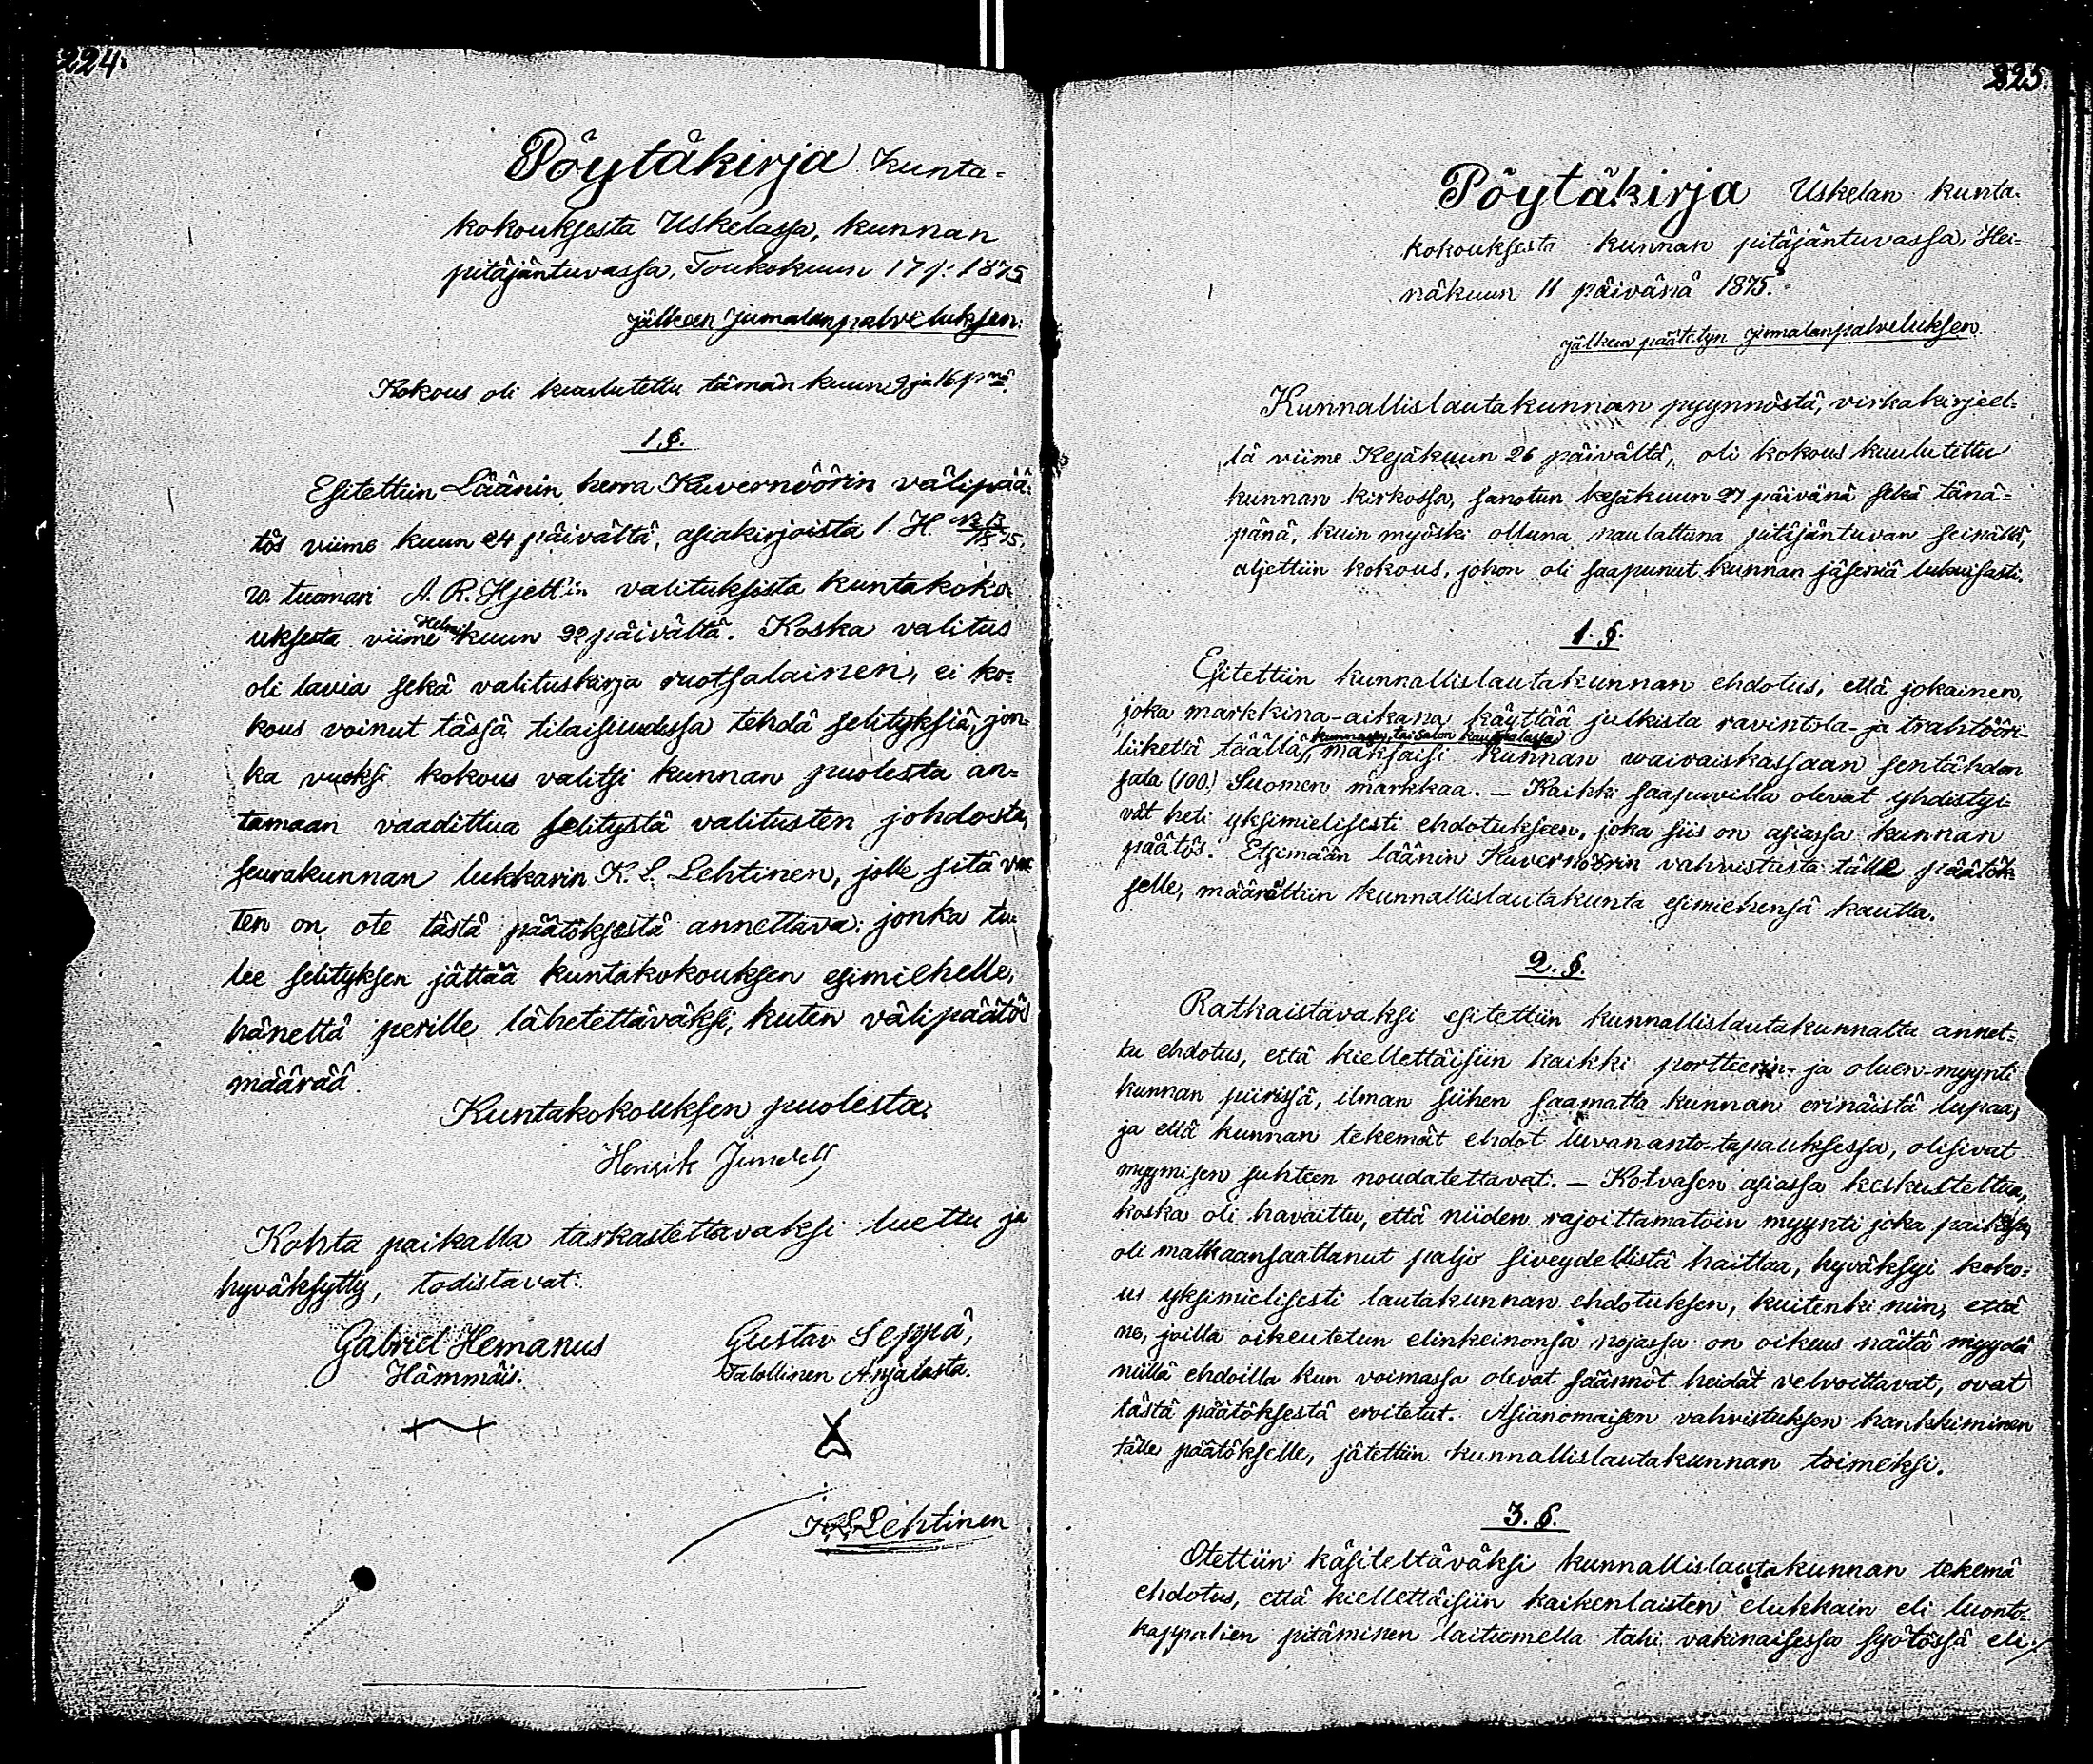 224.
Pöytäkirja kunta-
kokouksesta Uskelassa, kunnan
pitäjäntuvassa, Toukokuun 17 p: 1875
jälkeen Jumalanpalveluksen:
Kokous oli kuulutettu tämän kuun 9 ja 16 pnä.
1. §.
Esitettiin Läänin herra Kuvernöörin välipää-
tös viime kuun 24 päivältä, asiakirjoista 1. H.
v. tuomari A. R. Hjelt'in valituksesta kuntakoko-
uksesta viime Helmikuun 22 päivältä. Koska valitus
oli lavia sekä valituskirja ruotsalainen, ei ko-
kous voinut tässä tilaisuudessa tehdä selityksiä, jon-
ka vuoksi kokous valitsi kunnan puolesta an-
tamaan vaadittua selitystä valitusten johdosta,
seurakunnan lukkarin K. L. Lehtinen, jolle sitä var
ten on ote tästä päätöksestä annettava: jonka tu-
lee selityksen jättää kuntakokouksen esimiehelle,
häneltä perille lähetettäväksi, kuten välipäätös
määrää.
Kuntakokouksen puolesta:
Henrik Jundell
Kohta paikalla tarkastettavaksi luettu ja
hyväksytty, todistavat:
Gabriel Hemanus Gustav Seppä,
Hämmäis. Talollinen Anjalasta.
K. L. Lehtinen
225.
Pöytäkirja Uskelan kunta-
kokouksesta kunnan pitäjäntuvassa, Hei-
näkuun 11 päivänä 1875.
jälkeen päätetyn jumalanpalveluksen.
Kunnallislautakunnan pyynnöstä, virkakirjeel-
lä viime Kesäkuun 26 päivältä, oli kokous kuulutettu
kunnan kirkossa, sanotun kesäkuun 27 päivänä sekä tänä-
pänä, kuin myöski olluna naulattuna pitäjäntuvan seinällä,
aljettiin kokous, johon oli saapunut kunnan jäseniä lukuisasti.
1. §.
Esitettiin kunnallislautakunnan ehdotus, että jokainen,
joka markkina-aikana käyttää julkista ravintola- ja trahtööri-
kunnassa, tai Salon kauppalassa
liikettä täällä, maksaisi kunnan waivaiskassaan sentähden
sata (100.) Suomen markkaa. – Kaikki saapuvilla olevat yhdistyi-
vät heti yksimielisesti ehdotukseen, joka siis on asiassa kunnan
päätös. Etsimään läänin Kuvernöörin vahvistusta tälle päätök-
selle, määrättiin kunnallislautakunta esimiehensä kautta.
2. §.
Ratkaistavaksi esitettiin kunnallislautakunnalta annet-
tu ehdotus, että kiellettäisiin kaikki portteerin- ja oluen-myynti
kunnan piirissä, ilman siihen saamatta kunnan erinäistä lupaa,
ja että kunnan tekemät ehdot luvananto-tapauksessa, olisivat
myymisen suhteen noudatettavat. – Kotvasen asiassa keskusteltua,
koska oli havaittu, että niiden rajoittamatoin myynti joka paikassa,
oli matkaansaattanut paljo siveydellistä haittaa, hyväksyi koko-
us yksimielisesti lautakunnan ehdotuksen, kuitenki niin, että
ne, joilla oikeutetun elinkeinonsa nojassa on oikeus näitä myydä
niillä ehdoilla kun voimassa olevat säännöt heidät velvoittavat, ovat
tästä päätöksestä eroitetut. Asianomaisen vahvistuksen hankkiminen
tälle päätökselle, jätettiin kunnallislautakunnan toimeksi.
3. §.
Otettiin käsiteltäväksi kunnallislautakunnan tekemä
ehdotus, että kiellettäisiin kaikenlaisten elukkain eli luonto-
kappalien pitäminen laitumella tahi vakinaisessa syötössä eli